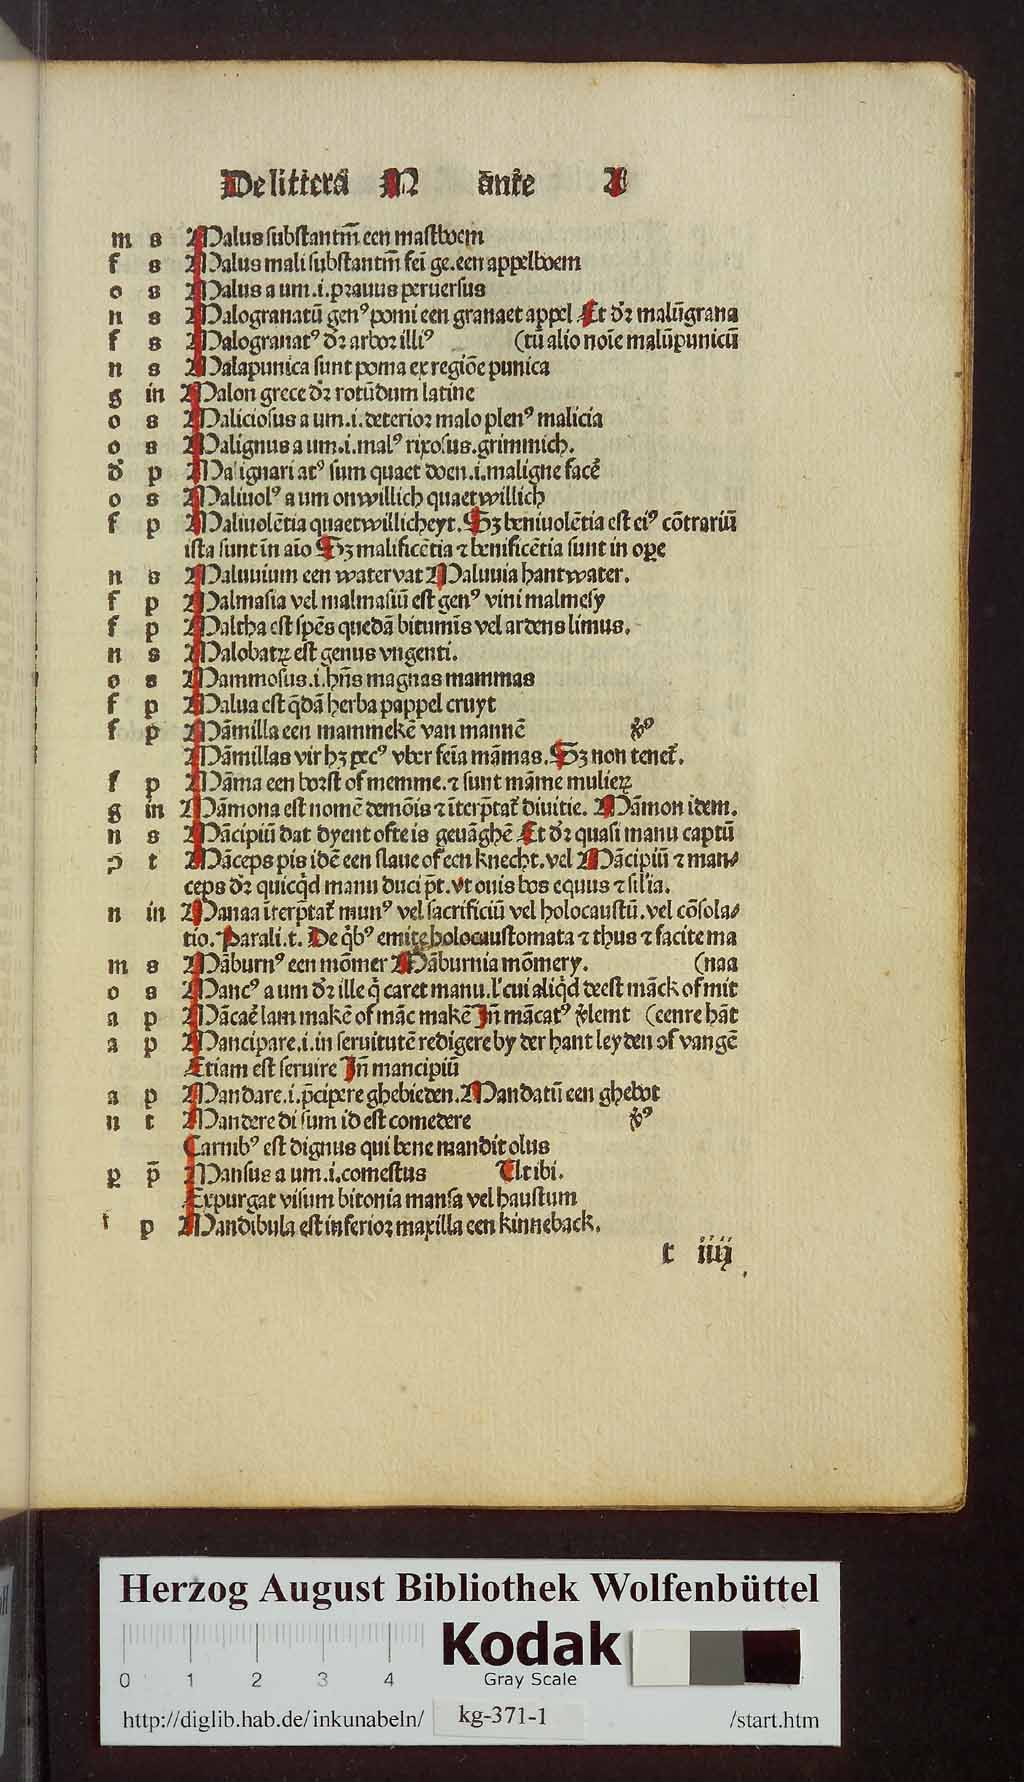 De littera M ante A
m s Malus substantm̄ een mastboem
f s Malus mali substantm̄ fei ge. een appelboem
o s Malus a um .i. prauus peruersus
n s Malogranatū genꝰ pomi een granaet appel Et dr̄ malūgrana
f s Malogranatꝰ dr̄ arbor illiꝰ (tū alio noīe malūpunicū
n s Malapunica sunt poma ex regiōe punica
g in Malon grece dr̄ rotūdum latine
o s Maliciosus a um .i. deterior malo plenꝰ malicia
o s Malignus a um .i. malꝰ rixosus. grimmich.
d' p Malignari atꝰ sum quaet doen .i. maligne facẽ
o s Maliuolꝰ a um onwillich quaetwillich
f p Maliuolētia quaetwillicheyt. Sꝫ beniuolētia est eiꝰ cōtrariū
ista sunt īn aīo Sꝫ malificētia ⁊ benificētia sunt in oꝑe
n s Maluuium een watervat Maluuia hantwater.
f p Malmasia vel malmasiū est genꝰ vini malmesy
f p Maltha est spēs quedā bitumīs vel ardens limus.
n s Malobatꝝ est genus vngenti.
o s Mammosus .i. hn̄s magnas mammas
f p Malua est q̄dā herba pappel cruyt
f p Māmilla een mammekē van mannē v̓sꝰ
Māmillas vir hꝫ pecꝰ vber feīa māmas. Sꝫ non tenet̄.
f p Māma een borst of memme. ⁊ sunt māme mulieꝝ
g in Māmona est nomē demōis ⁊ īterp̄tat̄ diuitie. Māmon idem.
n s Mācipiū dat dyent ofte is geuāghē Et dr̄ quasi manu captū
ꝯ t Māceps pis idē een slaue of een knecht. vel Mācipiū ⁊ man⸗
ceps dr̄ quicq̄d manu duci p̄t. vt ouis bos equus ⁊ sil'ia.
n in Manaa īterp̄tat̄ munꝰ vel sacrificiū vel holocaustū. vel cōsola⸗
tio. Parali. t. De q̄bꝰ emite holocaustomata ⁊ thus ⁊ facite ma
m s Māburnꝰ een mōmer Māburnia mōmery. (naa
o s Mancꝰ a um dr̄ ille q̄ caret manu. l' cui aliq̄d deest māck of mit
a p Mācaē lam makē of māc makē Jn̄ mācatꝰ v̓lemt (eenre hāt
a p Mancipare .i. in seruitutē redigere by der hant leyden of vangē
Etiam est seruire Jn̄ mancipiū
a p Mandare .i. p̄cipere ghebieden. Mandatū een ghebot
n t Mandere di sum id est comedere v̓sꝰ
Carnibꝰ est dignus qui bene mandit olus
ꝑ p̄ Mansus a um .i. comestus Vt ibi.
Expurgat visum bitonia mansa vel haustum
f p Mandibula est inferior maxilla een kinneback.
t iiij
Herzog August Bibliothek Wolfenbüttel
0 1 2 3 4
Kodak
Gray Scale
http://diglib.hab.de/inkunabeln/ kg-371-1 /start.htm